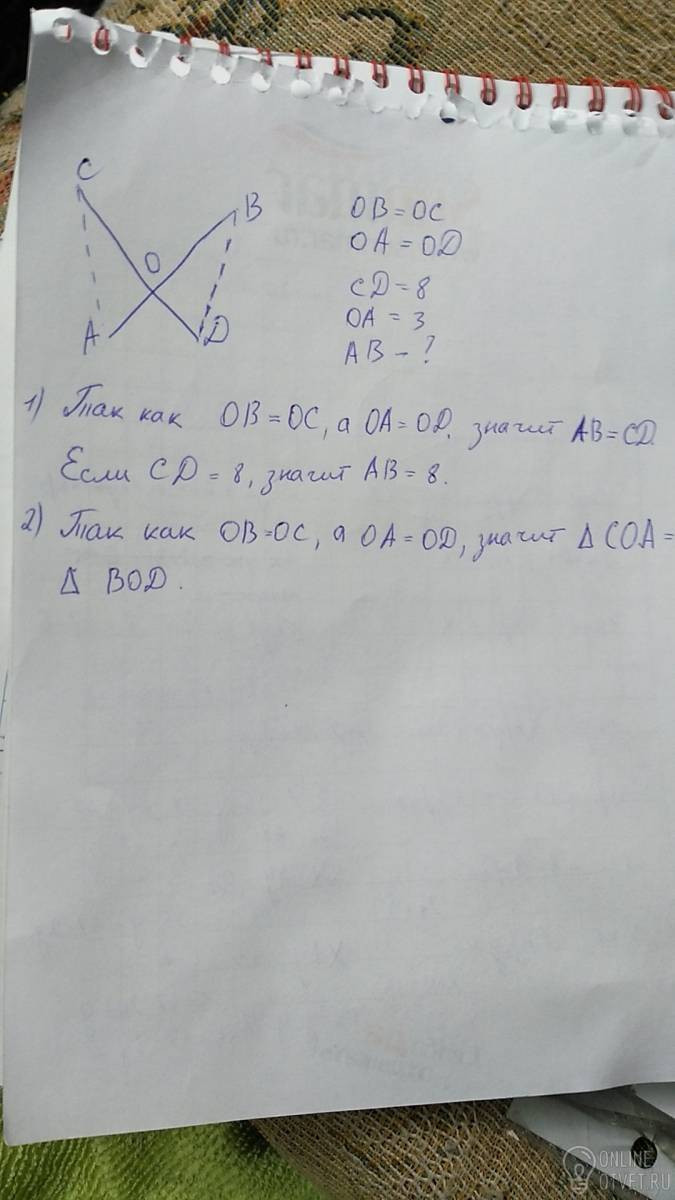 C
B
O
A
D
OB = OC
OA = OD
CD = 8
OA = 3
AB - ?
1) Так как OB = OC, а OA = OD, значит AB = CD.
Если CD = 8, значит AB = 8.
2) Так как OB = OC, а OA = OD, значит Δ COA =
Δ BOD.
ONLINE
OTVET.RU